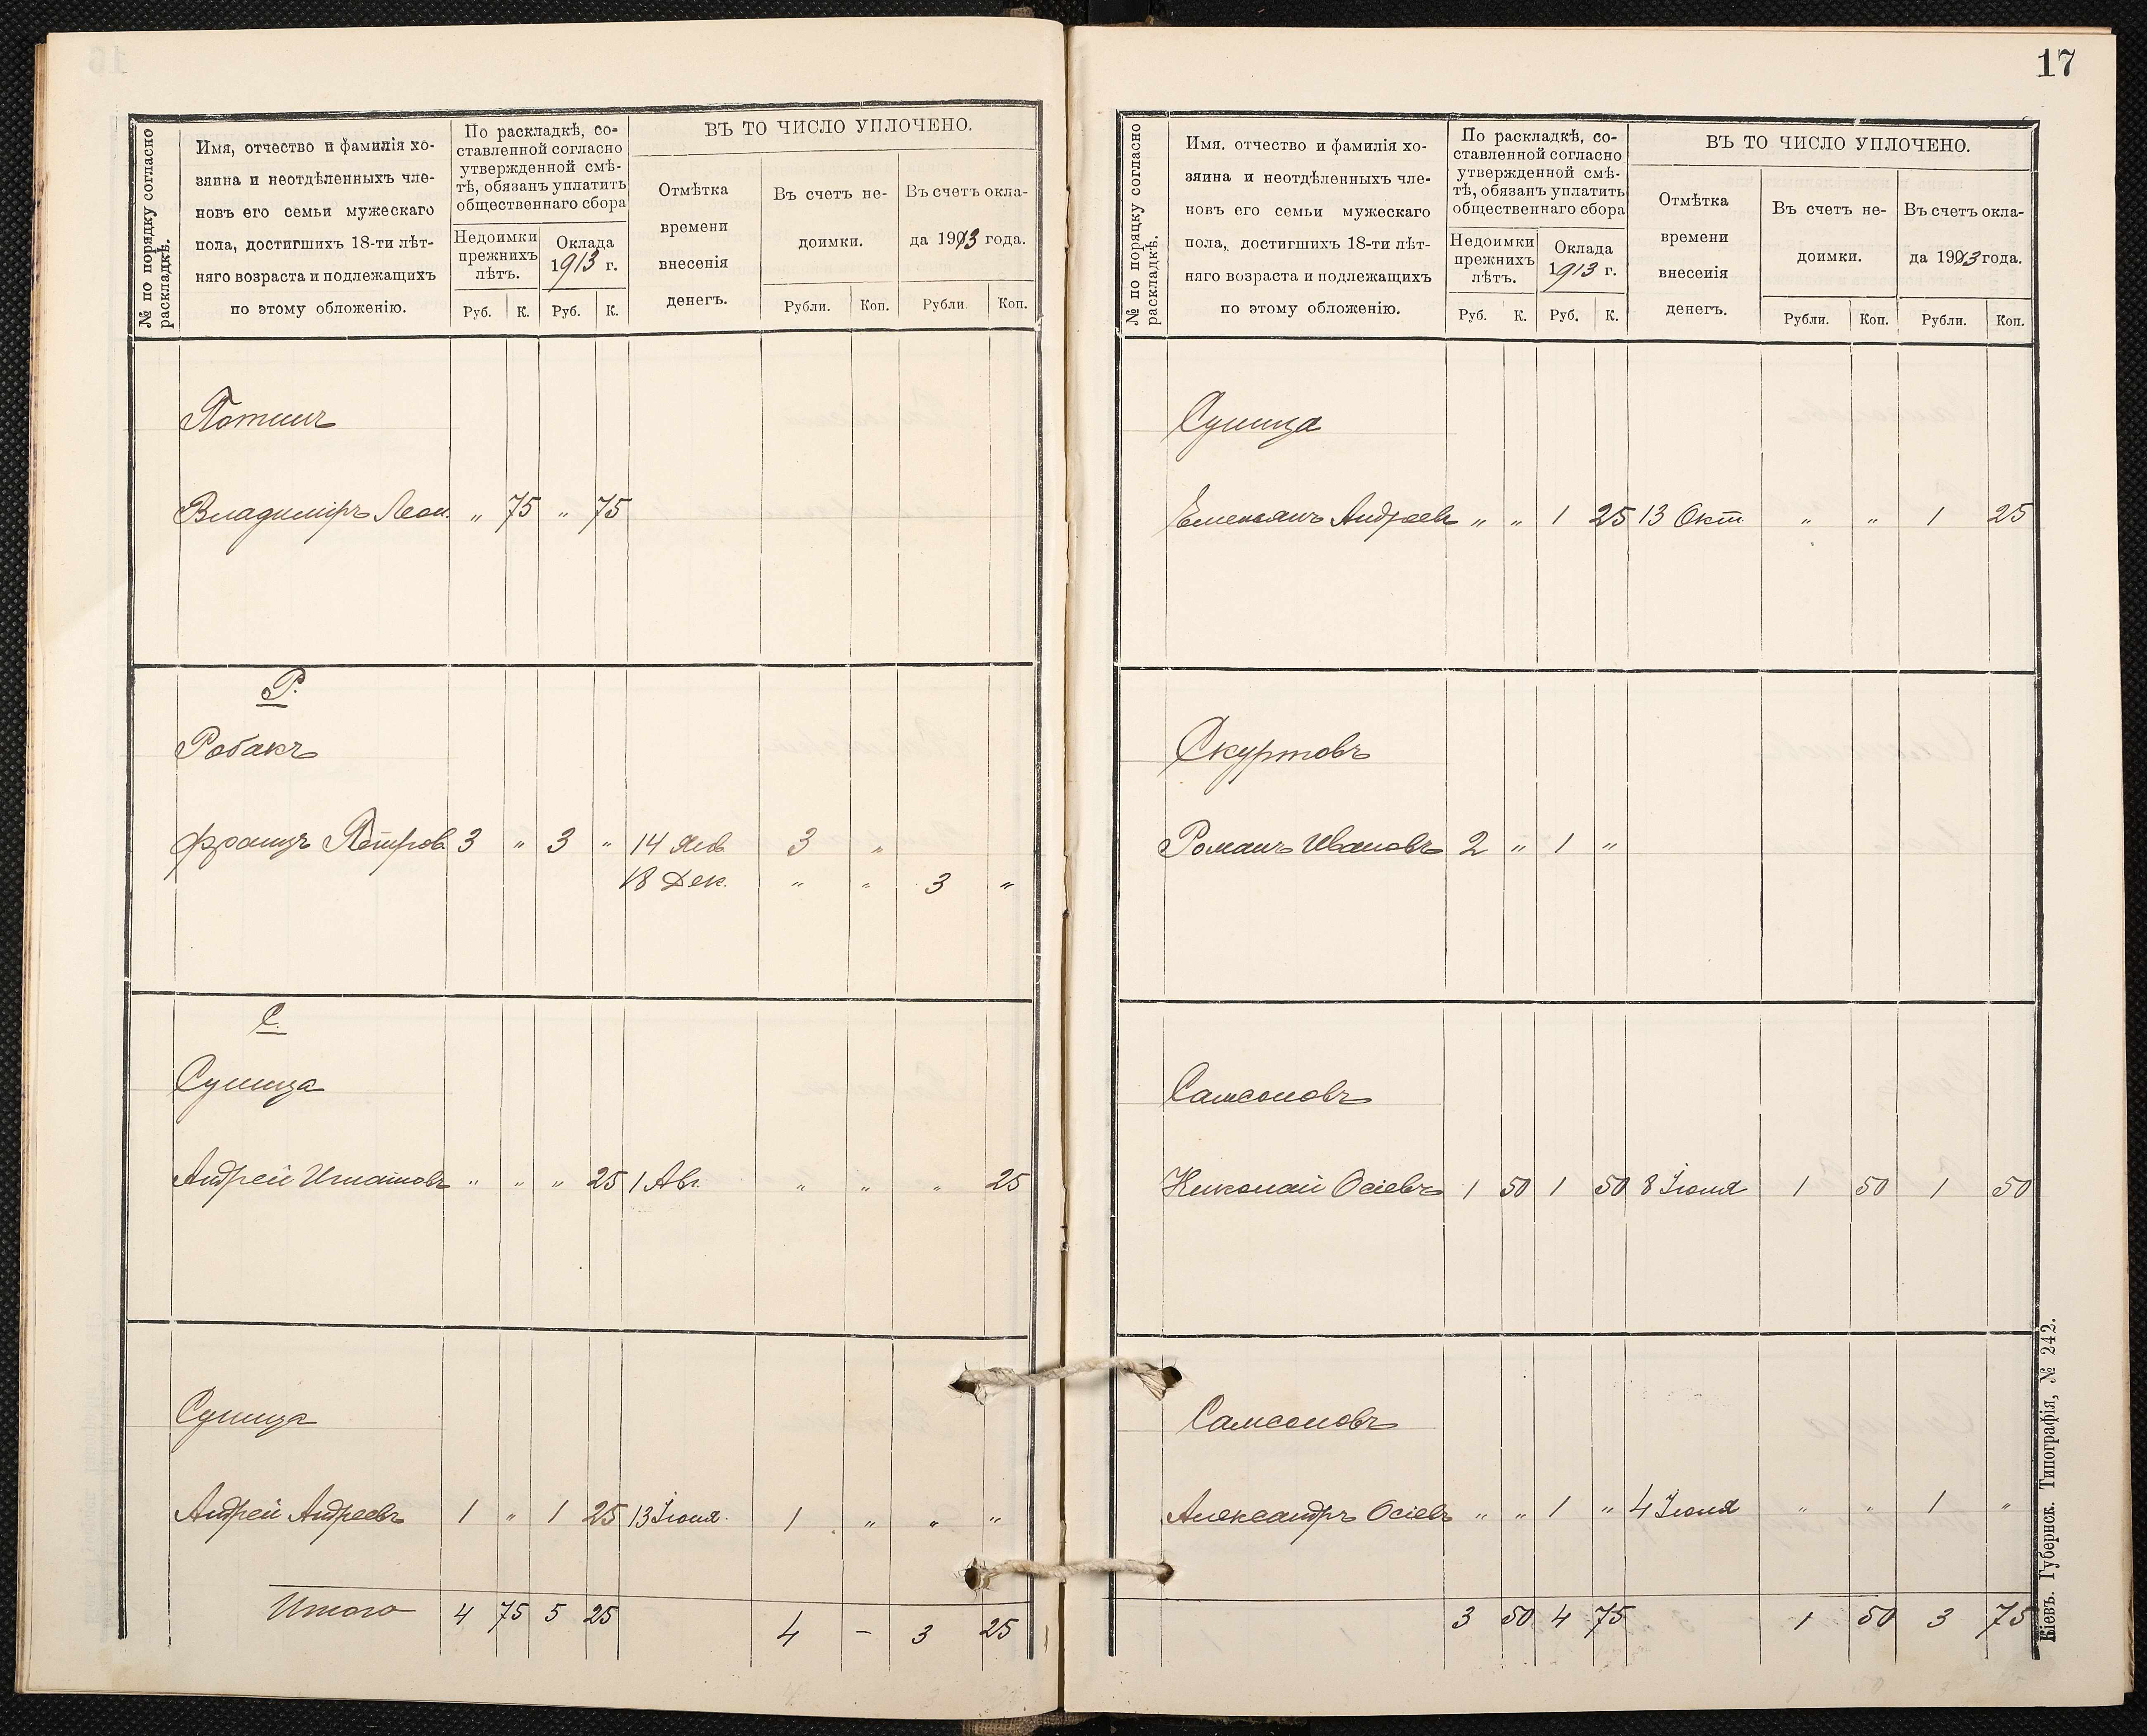 17
№ по порядку согласно
раскладкѣ.
Имя, отчество и фамилія хо-
зяина и неотдѣленныхъ чле-
новъ его семьи мужескаго
пола, достигшихъ 18-ти лѣт-
няго возраста и подлежащихъ
по этому обложенію.
По раскладкѣ, со-
ставленной согласно
утвержденной смѣ-
тѣ, обязанъ уплатить
общественнаго сбора
Недоимки
прежнихъ
лѣтъ.
Оклада
1913 г.
Руб. К. Руб. К.
ВЪ ТО ЧИСЛО УПЛОЧЕНО.
Отмѣтка
времени
внесенія
денегъ.
Въ счетъ не-
доимки.
Въ счетъ окла-
да 1913 года.
Рубли. Коп. Рубли. Коп.
Владиміръ Леон. " 75 " 75
Р.
Робакъ
Францъ Петров. 3 " 3 " 14 Янв. 3 "
18 Дек. " " 3 "
С.
Суница
Андрей Игнатовъ " " " 25 1 Авг. " " " 25
Суница
Андрей Андреевъ 1 " 1 25 13 Іюня 1 " " "
Итого 4 75 5 25 4 – 3 25
№ по порядку согласно
раскладкѣ.
Имя. отчество и фамилія хо-
зяина и неотдѣленныхъ чле-
новъ его семьи мужескаго
пола, достигшихъ 18-ти лѣт-
няго возраста и подлежащихъ
по этому обложенію.
По раскладкѣ, со-
ставленной согласно
утвержденной смѣ-
тѣ, обязанъ уплатить
общественнаго сбора
Недоимки
прежнихъ
лѣтъ.
Оклада
1913 г.
Руб. К. Руб. К.
ВЪ ТО ЧИСЛО УПЛОЧЕНО.
Отмѣтка
времени
внесенія
денегъ.
Въ счетъ не-
доимки.
Въ счетъ окла-
да 1913 года.
Рубли. Коп. Рубли. Коп.
Суница
Емельянъ Андреевъ " " 1 25 13 Окт. " " 1 25
Скуртовъ
Романъ Ивановъ 2 " 1 "
Самсоновъ
Николай Осіевъ 1 50 1 50 8 Іюня 1 50 1 50
Самсоновъ
Александръ Осіевъ " " 1 " 4 Іюня " " 1 "
3 50 4 75 1 50 3 75
Кіевъ. Губернск. Типографія, № 242.